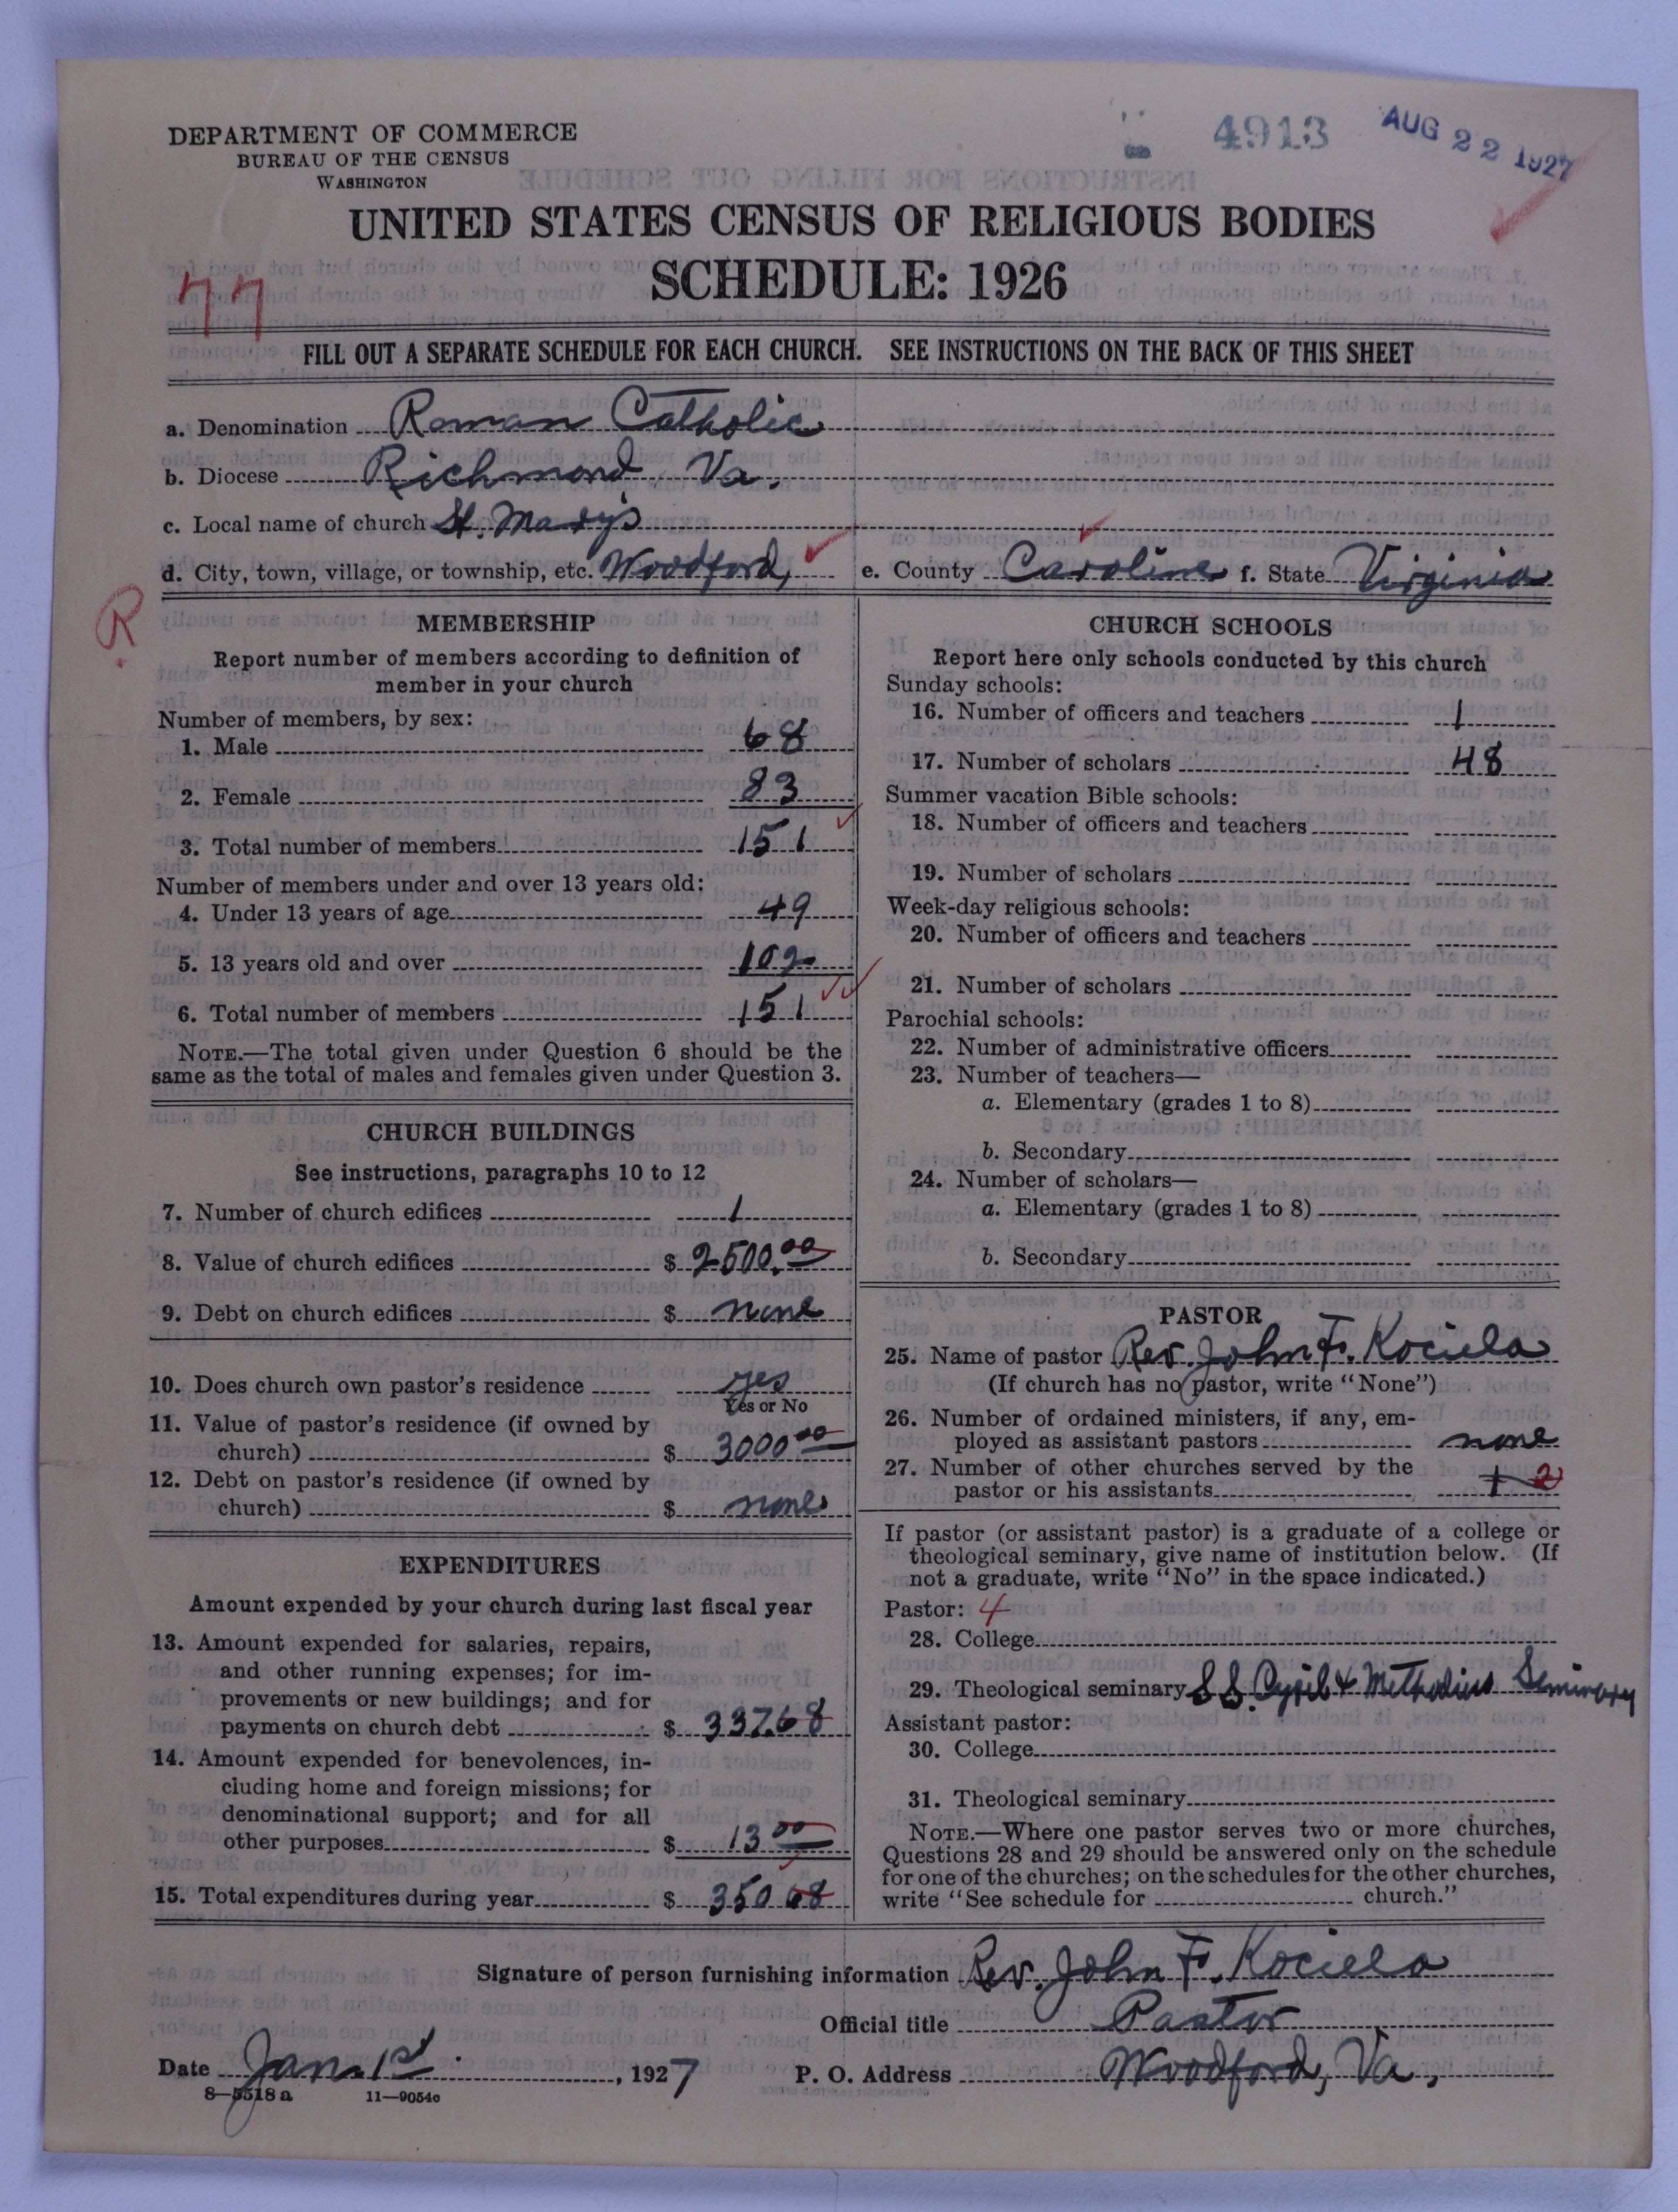 4913
AUG 22 1927
DEPARTMENT OF COMMERCE
BUREAU OF THE CENSUS
WASHINGTON
UNITED STATES CENSUS OF RELIGIOUS BODIES
SCHEDULE: 1926
77
FILL OUT A SEPARATE SCHEDULE FOR EACH CHURCH. SEE INSTRUCTIONS ON THE BACK OF THIS SHEET
a. Denomination Roman Catholic
b. Diocese Richmond Va.
c. Local name of church St. Mary's
d. City, town, village, or township, etc. Woodford, e. County Caroline f. State Virginia
R
MEMBERSHIP
Report number of members according to definition of
member in your church
Number of members, by sex:
1. Male 68
2. Female 83
3. Total number of members 151
Number of members under and over 13 years old:
4. Under 13 years of age 49
5. 13 years old and over 102
6. Total number of members 151
NOTE.—The total given under Question 6 should be the
same as the total of males and females given under Question 3.
CHURCH BUILDINGS
See instructions, paragraphs 10 to 12
7. Number of church edifices 1
8. Value of church edifices $ 2500.00
9. Debt on church edifices $ none
10. Does church own pastor's residence yes
Yes or No
11. Value of pastor's residence (if owned by
church) $ 3000 00
12. Debt on pastor's residence (if owned by
church) $ none
EXPENDITURES
Amount expended by your church during last fiscal year
13. Amount expended for salaries, repairs,
and other running expenses; for im-
provements or new buildings; and for
payments on church debt $ 337.68
14. Amount expended for benevolences, in-
cluding home and foreign missions; for
denominational support; and for all
other purposes $ 13 00
15. Total expenditures during year $ 350 68
CHURCH SCHOOLS
Report here only schools conducted by this church
Sunday schools:
16. Number of officers and teachers 1
17. Number of scholars 48
Summer vacation Bible schools:
18. Number of officers and teachers
19. Number of scholars
Week-day religious schools:
20. Number of officers and teachers
21. Number of scholars
Parochial schools:
22. Number of administrative officers
23. Number of teachers—
a. Elementary (grades 1 to 8)
b. Secondary
24. Number of scholars—
a. Elementary (grades 1 to 8)
b. Secondary
PASTOR
25. Name of pastor Rev. John F. Kociela
(If church has no pastor, write "None")
26. Number of ordained ministers, if any, em-
ployed as assistant pastors none
27. Number of other churches served by the
pastor or his assistants 1 2
If pastor (or assistant pastor) is a graduate of a college or
theological seminary, give name of institution below. (If
not a graduate, write "No" in the space indicated.)
Pastor: 4
28. College
29. Theological seminary S S. Cyril & Methodius Seminary
Assistant pastor:
30. College
31. Theological seminary
NOTE.—Where one pastor serves two or more churches,
Questions 28 and 29 should be answered only on the schedule
for one of the churches; on the schedules for the other churches,
write "See schedule for church."
Signature of person furnishing information Rev. John F. Kociela
Official title Pastor
Date Jan. 1st, 1927 P. O. Address Woodford, Va.
8—5518a 11—9054c